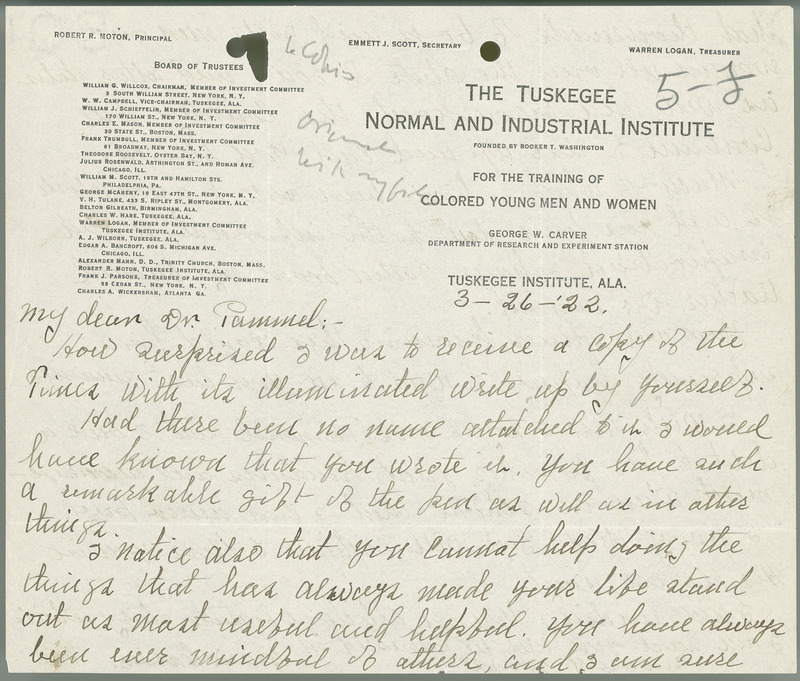 ROBERT R. MOTON, PRINCIPAL
EMMETT J. SCOTT, SECRETARY
WARREN LOGAN, TREASURER
BOARD OF TRUSTEES
WILLIAM G. WILLCOX, CHAIRMAN, MEMBER OF INVESTMENT COMMITTEE
3 SOUTH WILLIAM STREET, NEW YORK, N. Y.
W. W. CAMPBELL, VICE-CHAIRMAN, TUSKEGEE, ALA.
WILLIAM J. SCHIEFFELIN, MEMBER OF INVESTMENT COMMITTEE
170 WILLIAM ST., NEW YORK, N. Y.
CHARLES E. MASON, MEMBER OF INVESTMENT COMMITTEE
30 STATE ST., BOSTON, MASS.
FRANK TRUMBULL, MEMBER OF INVESTMENT COMMITTEE
61 BROADWAY, NEW YORK, N. Y.
THEODORE ROOSEVELT, OYSTER BAY, N. Y.
JULIUS ROSENWALD, ARTHINGTON ST., AND HOMAN AVE.
CHICAGO, ILL.
WILLIAM M. SCOTT, 19TH AND HAMILTON STS.
PHILADELPHIA, PA.
GEORGE MCANENY, 19 EAST 47TH ST., NEW YORK, N. Y.
V. H. TULANE, 433 S. RIPLEY ST., MONTGOMERY, ALA.
BELTON GILREATH, BIRMINGHAM, ALA.
CHARLES W. HARE, TUSKEGEE, ALA.
WARREN LOGAN, MEMBER OF INVESTMENT COMMITTEE
TUSKEGEE INSTITUTE, ALA.
A. J. WILBORN, TUSKEGEE, ALA.
EDGAR A. BANCROFT, 606 S. MICHIGAN AVE.
CHICAGO, ILL.
ALEXANDER MANN, D. D., TRINITY CHURCH, BOSTON, MASS.
ROBERT R. MOTON, TUSKEGEE INSTITUTE, ALA.
FRANK J. PARSONS, TREASURER OF INVESTMENT COMMITTEE
55 CEDAR ST., NEW YORK, N. Y.
CHARLES A. WICKERSHAM, ATLANTA GA.
THE TUSKEGEE
NORMAL AND INDUSTRIAL INSTITUTE
FOUNDED BY BOOKER T. WASHINGTON
FOR THE TRAINING OF
COLORED YOUNG MEN AND WOMEN
GEORGE W. CARVER
DEPARTMENT OF RESEARCH AND EXPERIMENT STATION
TUSKEGEE INSTITUTE, ALA.
3-26-'22.
My dear Dr. Pammel:-
How surprised I was to receive a copy of the
Times with its illuminated write up by yourself.
Had there been no name attatched to it I would
have known that you wrote it. You have such
a remarkable gift of the pen as well as in other
things.
I notice also that you cannot help doing the
things that has always made your life stand
out as most useful and helpful. You have always
been ever mindful of others, and I am sure